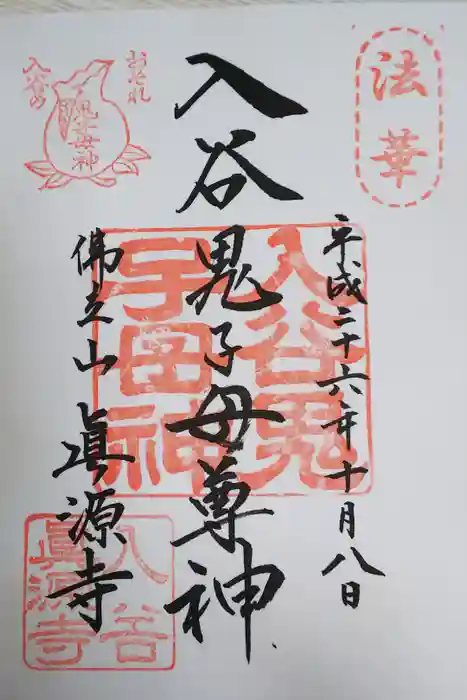 法華
平成二十六年十月八日
入谷鬼子母尊神
佛立山
眞源寺
おそれ
入谷の
鬼子母神
入谷鬼
子母神
入谷
眞源寺